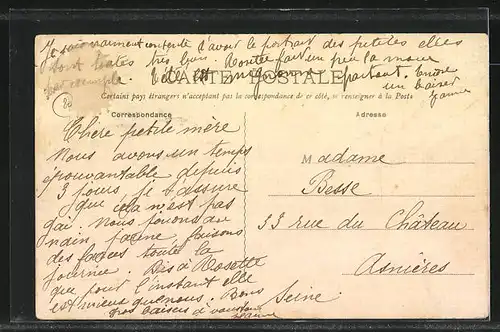 Je suis vraiment contente d'avoir le portrait des petites elles
sont toutes très bien. Rosette fait un peu la moue
par exemple. Elle est mignonne partout. Encore
un baiser
Jeanne
CARTE POSTALE
Certains pays étrangers n'acceptant pas la correspondance de ce côté, se renseigner à la Poste
Correspondance
Adresse
80
Chère petite mère
Nous avons un temps
épouvantable depuis
3 jours, je t'assure
que cela n'est pas
gai. Nous jouons au
nain jaune faisons
des façons toute la
journée. Dis à Rosette
que pour l'instant elle
est mieux que nous. Bons
gros baisers à vous tous
Jeanne
Madame
Besse
33 rue du Château
Asnières
Seine